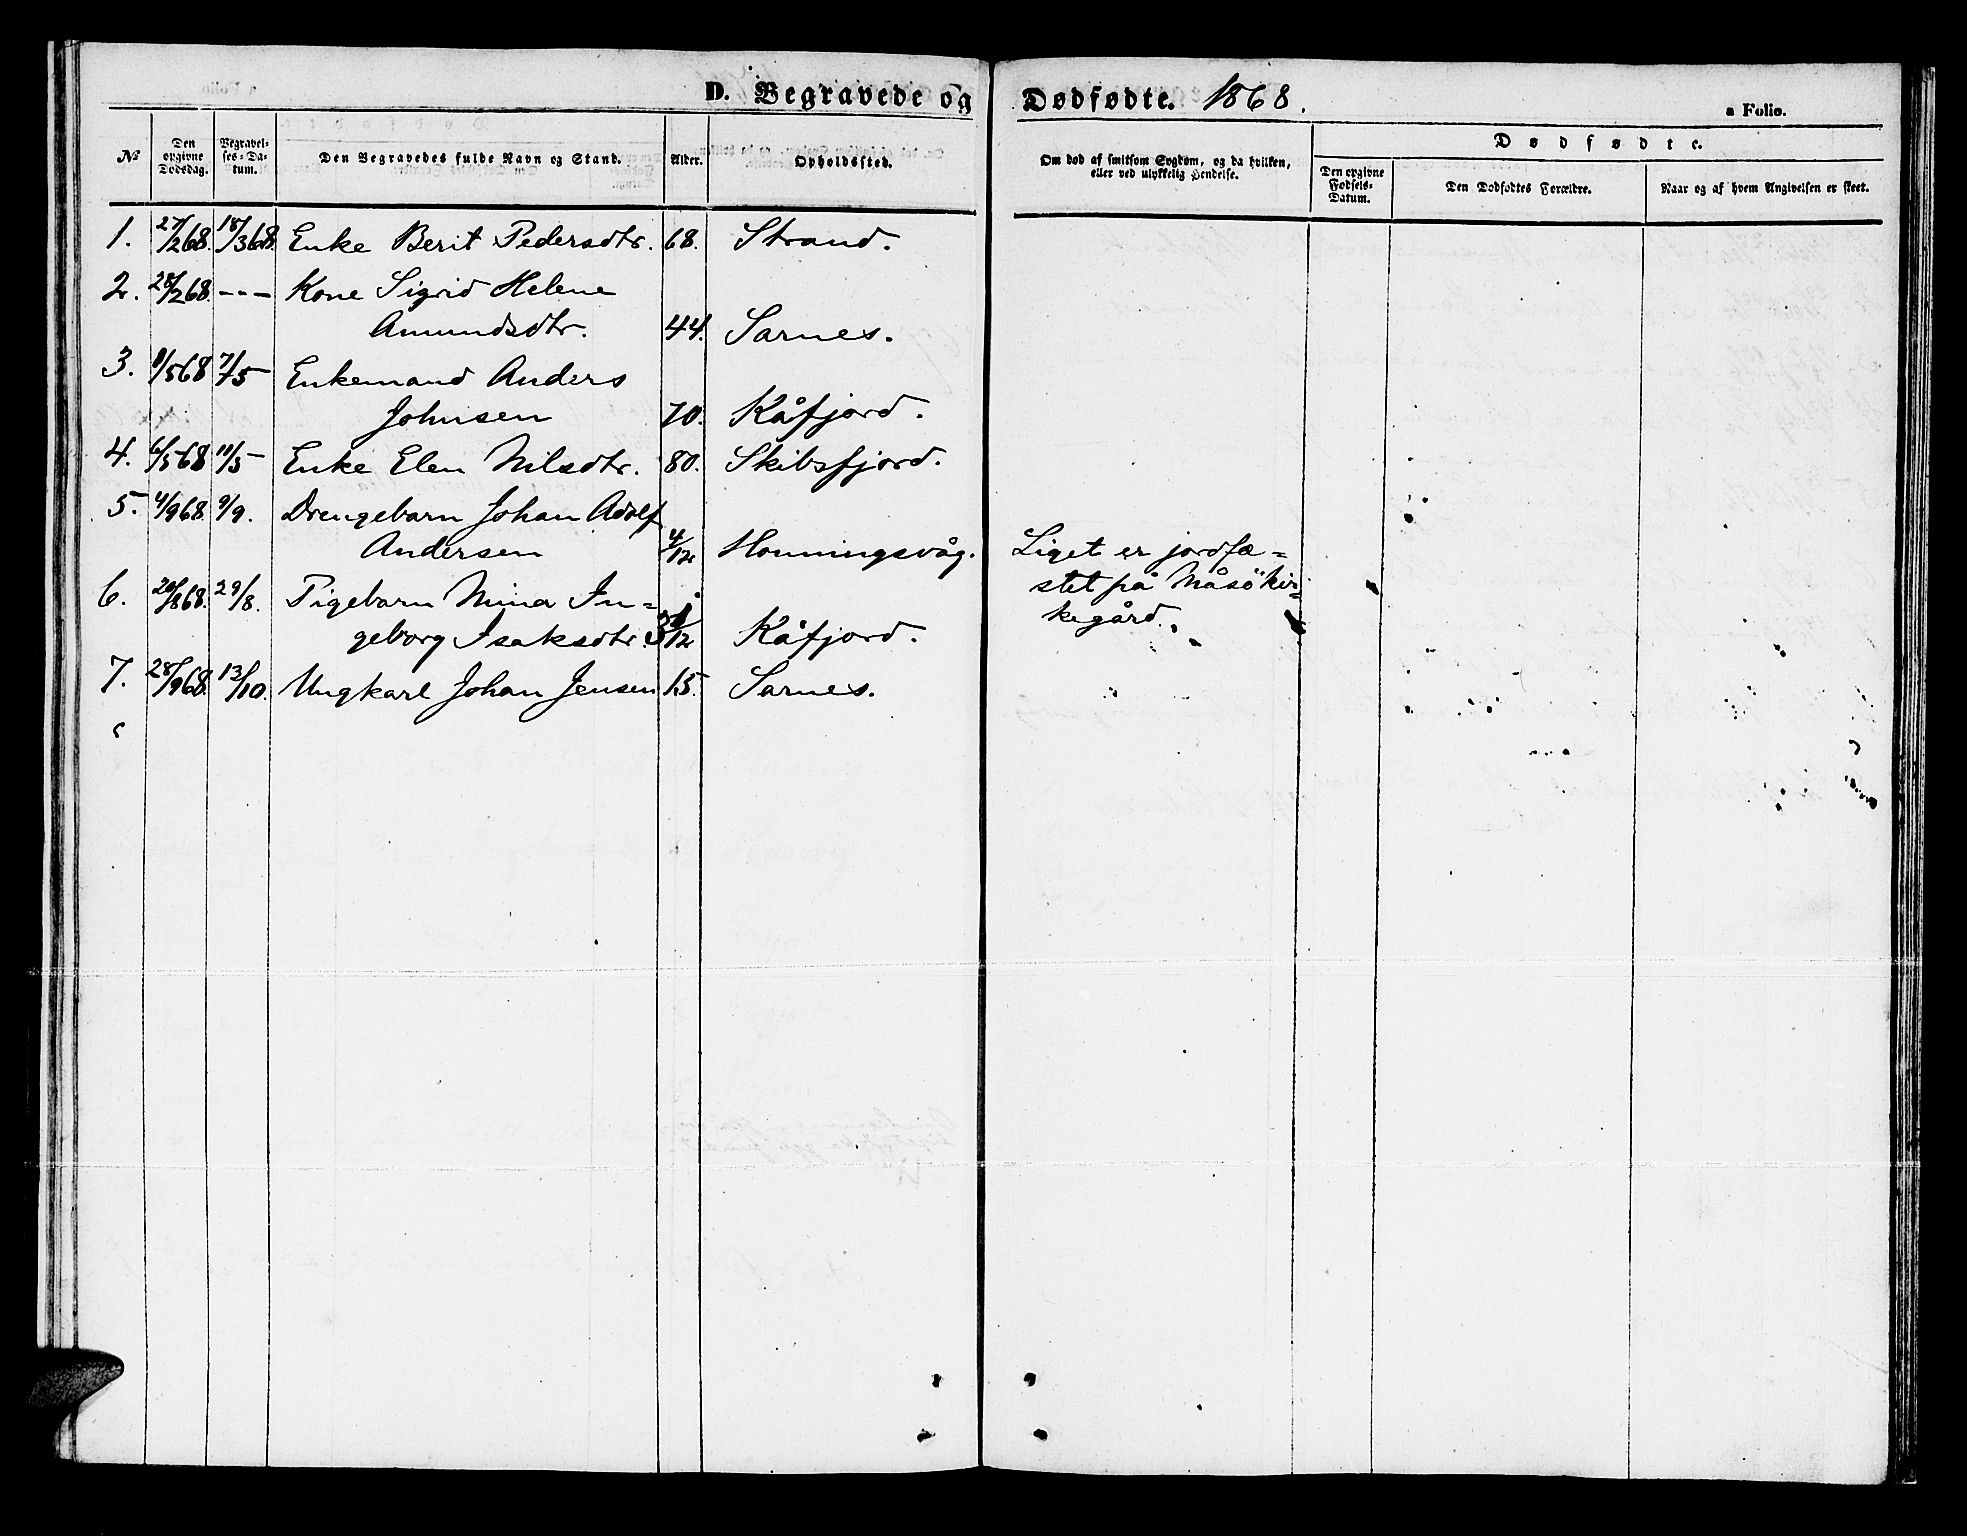 D. Begravede og Dødfødte. 1868.
a Folio.
№ Den opgivne Dødsdag. Begravelses-Datum. Den Begravedes fulde Navn og Stand. Alder. Opholdssted. Om død af smitsom Sygdom, og da hvilken, eller ved ulykkelig Hendelse.
Dødfødte.
Den opgivne Fødsels-Datum. Den Dødfødtes Forældre. Naar og af hvem Angivelsen er skeet.
1. 27/2 68. 18/3 68. Enke Berit Pedersdtr. 68. Strand.
2. 28/2 68. --- Kone Sigrid Helene
Amundsdtr. 44. Sarnes.
3. 1/5 68 7/5 Enkemand Anders
Johnsen 70. Kåfjord.
4. 6/5 68 11/5 Enke Elen Nilsdtr. 80. Skibsfjord.
5. 4/9 68. 9/9. Drengebarn Johan Adolf
Andersen 4/12 Honningsvåg. Liget er jordfæ=
stet på Måsö kir=
kegård.
6. 20/8 68. 29/8. Pigebarn Nina In=
geborg Isaksdtr. Kåfjord.
7. 28/9 68. 13/10. Ungkarl Johan Jensen 15. Sarnes.